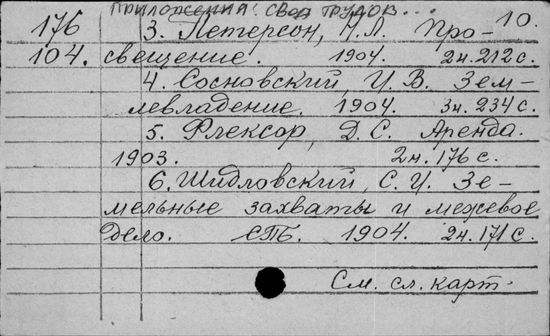 Приложения: Свод трудов...
176 3. Петерсон, Н.Л. Про- 10.
104. свещение. 1904. 2н.212с.
4. Сосновский, И.В. Зем-
левладение. 1904. 3н.234с.
5. Флексор, Д.С. Аренда.
1903. 2н.176с.
6. Шидловский, С.И. Зе-
мельные захваты и межевое
дело. СПБ. 1904. 2н.171с.
См. сл. карт.